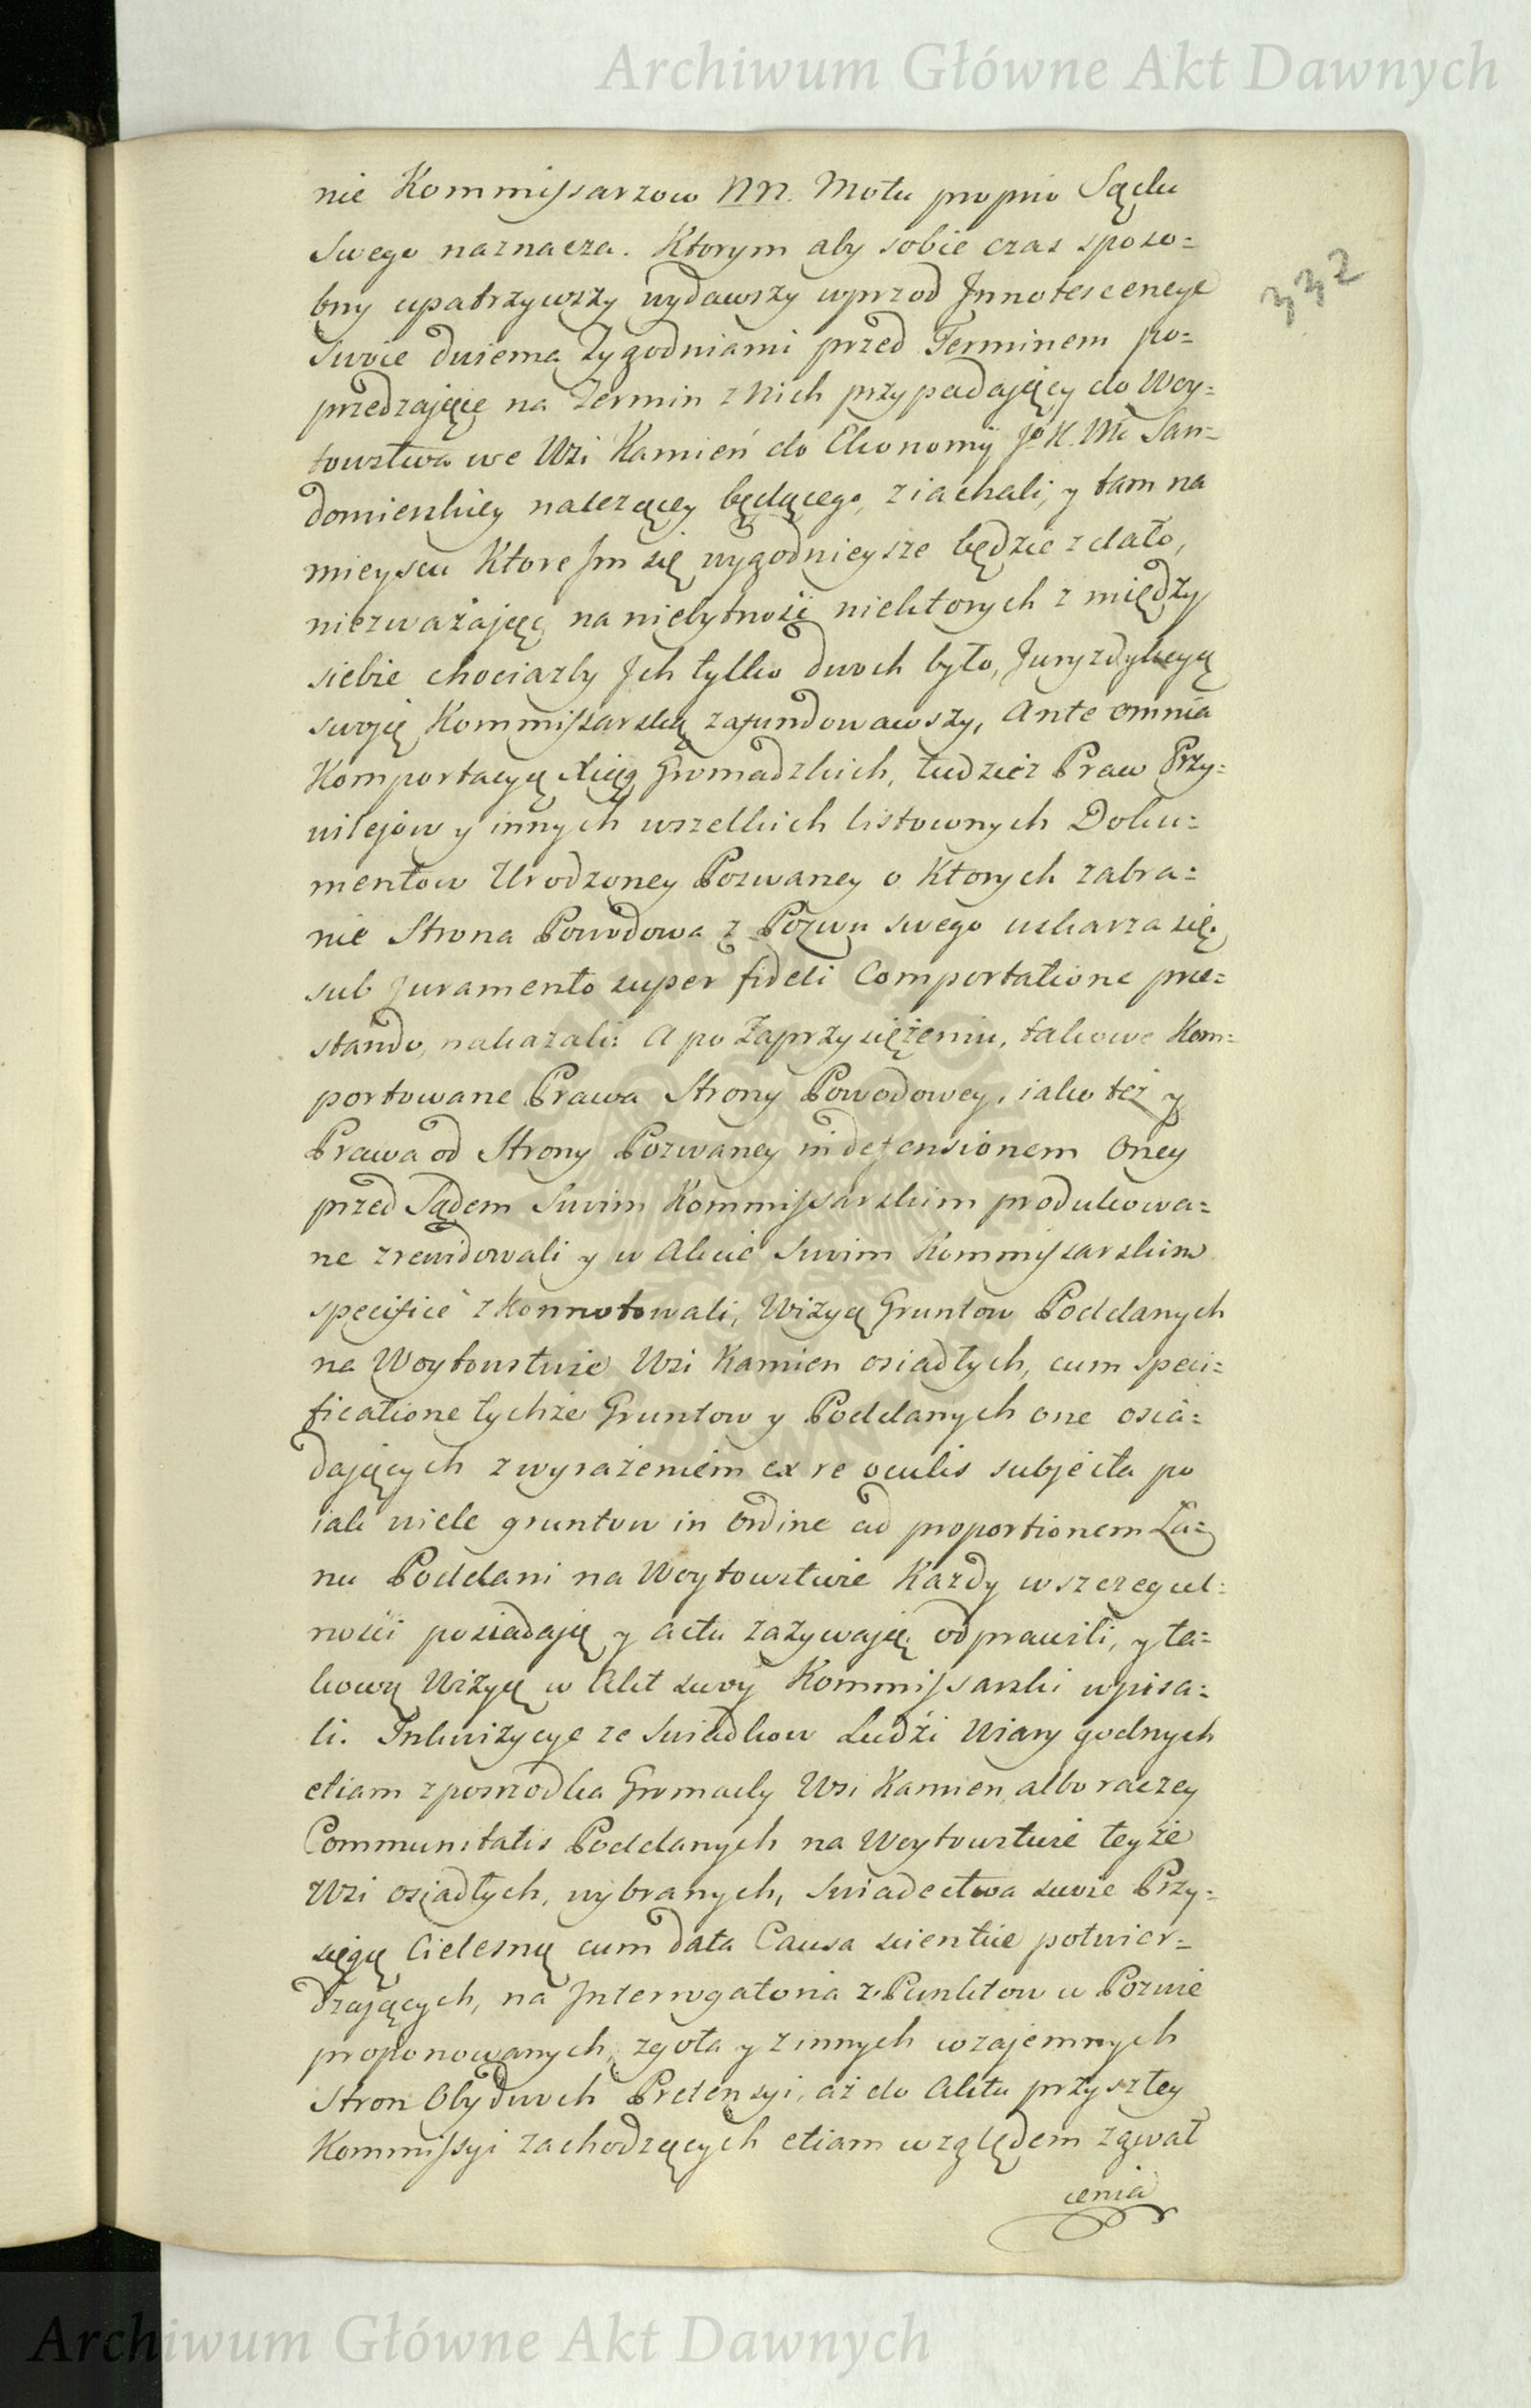 Archiwum Główne Akt Dawnych
nie Kommissarzow NN. Motu proprio Sądu
Swego naznacza. Ktorym aby sobie czas sposo=
bny upatrzywszy wydawszy wprzod Jnnotescencye
swoie dwiema Tygodniami przed Terminem po=
przedzaiącę na Termin z Nich przypadaiący do Woy=
towstwa we Wsi Kamień do Ekonomij Jº K. Mci San=
domierskiey nalezącey będącego, ziachali, y tam na
mieyscu Ktore Jm się wygodnieysze będzie zdało,
niezważaiąc na niebytność niektorych z między
siebie chociazby Jch tylko dwoch było, Juryzdykcyą
swoję Kommissarską zafundowawszy, Ante omnia
Komportacyą Xiąg Gromadzkich, tudzież Praw Przy=
wilejow y innych wszelkich listownych Doku=
mentow Urodzoney Pozwaney o Ktorych zabra=
nie Strona Powodowa z Pozwu swego uskarza się,
sub Juramento super fideli Comportatione prae=
stando, nakazali: A po Zaprzysiężeniu, takowe Kom=
portowane Prawa Strony Powodowey, iako też y
Prawa od Strony Pozwaney in defensionem Oney
przed Sądem Swoim Kommissarskim produkowa=
ne zrewidowali y w Akcie Swoim Kommissarskim
specifice zkonnotowali, Wizyą Gruntow Poddanych
na Woytowstwie Wsi Kamien osiadłych, cum speci=
ficatione tychże Gruntow y Poddanych one osia=
daiących z wyrażeniem ex re oculis subjecta po
iak wiele gruntow in ordine ad proportionem Ła=
nu Poddani na Woytowstwie Kazdy w szczegul=
ności posiadaią y actu zażywaią odprawili, y ta=
kową Wizyą w Akt swoy Kommissarski wpisa=
li. Inkwizycye ze Swiadkow Ludzi Wiary godnych
etiam z posrzodka Gromady Wsi Kamien, albo raczey
Communitatis Poddanych na Woytowstwie teyże
Wsi osiadłych, wybranych, Swiadectwa swoie Przy=
sięgą Cielesną cum data Causa scientiae potwier=
dzaiących, na Jnterrogatoria z Punktow w Pozwie
proponowanych, zgoła y z innych wzajemnych
stron Obydwoch Pretensyi, aż do Aktu przyszłey
Kommissyi zachodzących etiam względem zgwał
cenia
332
Archiwum Główne Akt Dawnych